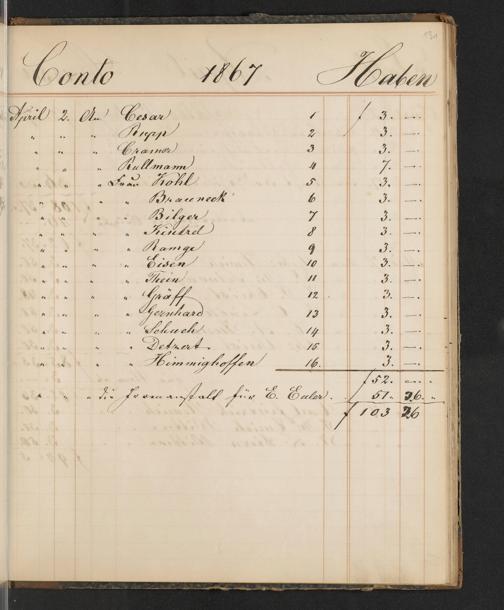 131
Conto 1867 Haben
April 2. An Cesar 1 f 3. —
" " " Rupp 2 3. —
" " " Cramer 3 3. —
" " " Rullmann 4 7. —
" " " Frau Kohl 5. 3. —
" " " " Brauneck 6 3. —
" " " " Bilger 7 3. —
" " " " 8 3. —
" " " " Ramge 9 3. —
" " " " Eisen 10 3. —
" " " " Thein 11 3. —
" " " " Gräff 12 3. —
" " " " Gernhard 13 3. —
" " " " Schuch 14 3. —
" " " " Detzert 15 3. —
" " " " Himmighoffen 16. 3. —
f 52. —
" " " die Irrenanstalt für E. Euler. " 51. 26.
f 103 26